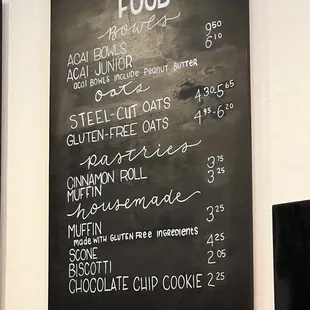 FOOD
Bowls
ACAI BOWLS 9.50
ACAI JUNIOR 6.10
ACAI BOWLS INCLUDE PEANUT BUTTER
oats
STEEL-CUT OATS 4.30-5.65
GLUTEN-FREE OATS 4.95-6.20
pastries
CINNAMON ROLL 3.75
MUFFIN 3.25
housemade
MUFFIN 3.25
MADE WITH GLUTEN FREE INGREDIENTS
SCONE 4.25
BISCOTTI 2.05
CHOCOLATE CHIP COOKIE 2.25